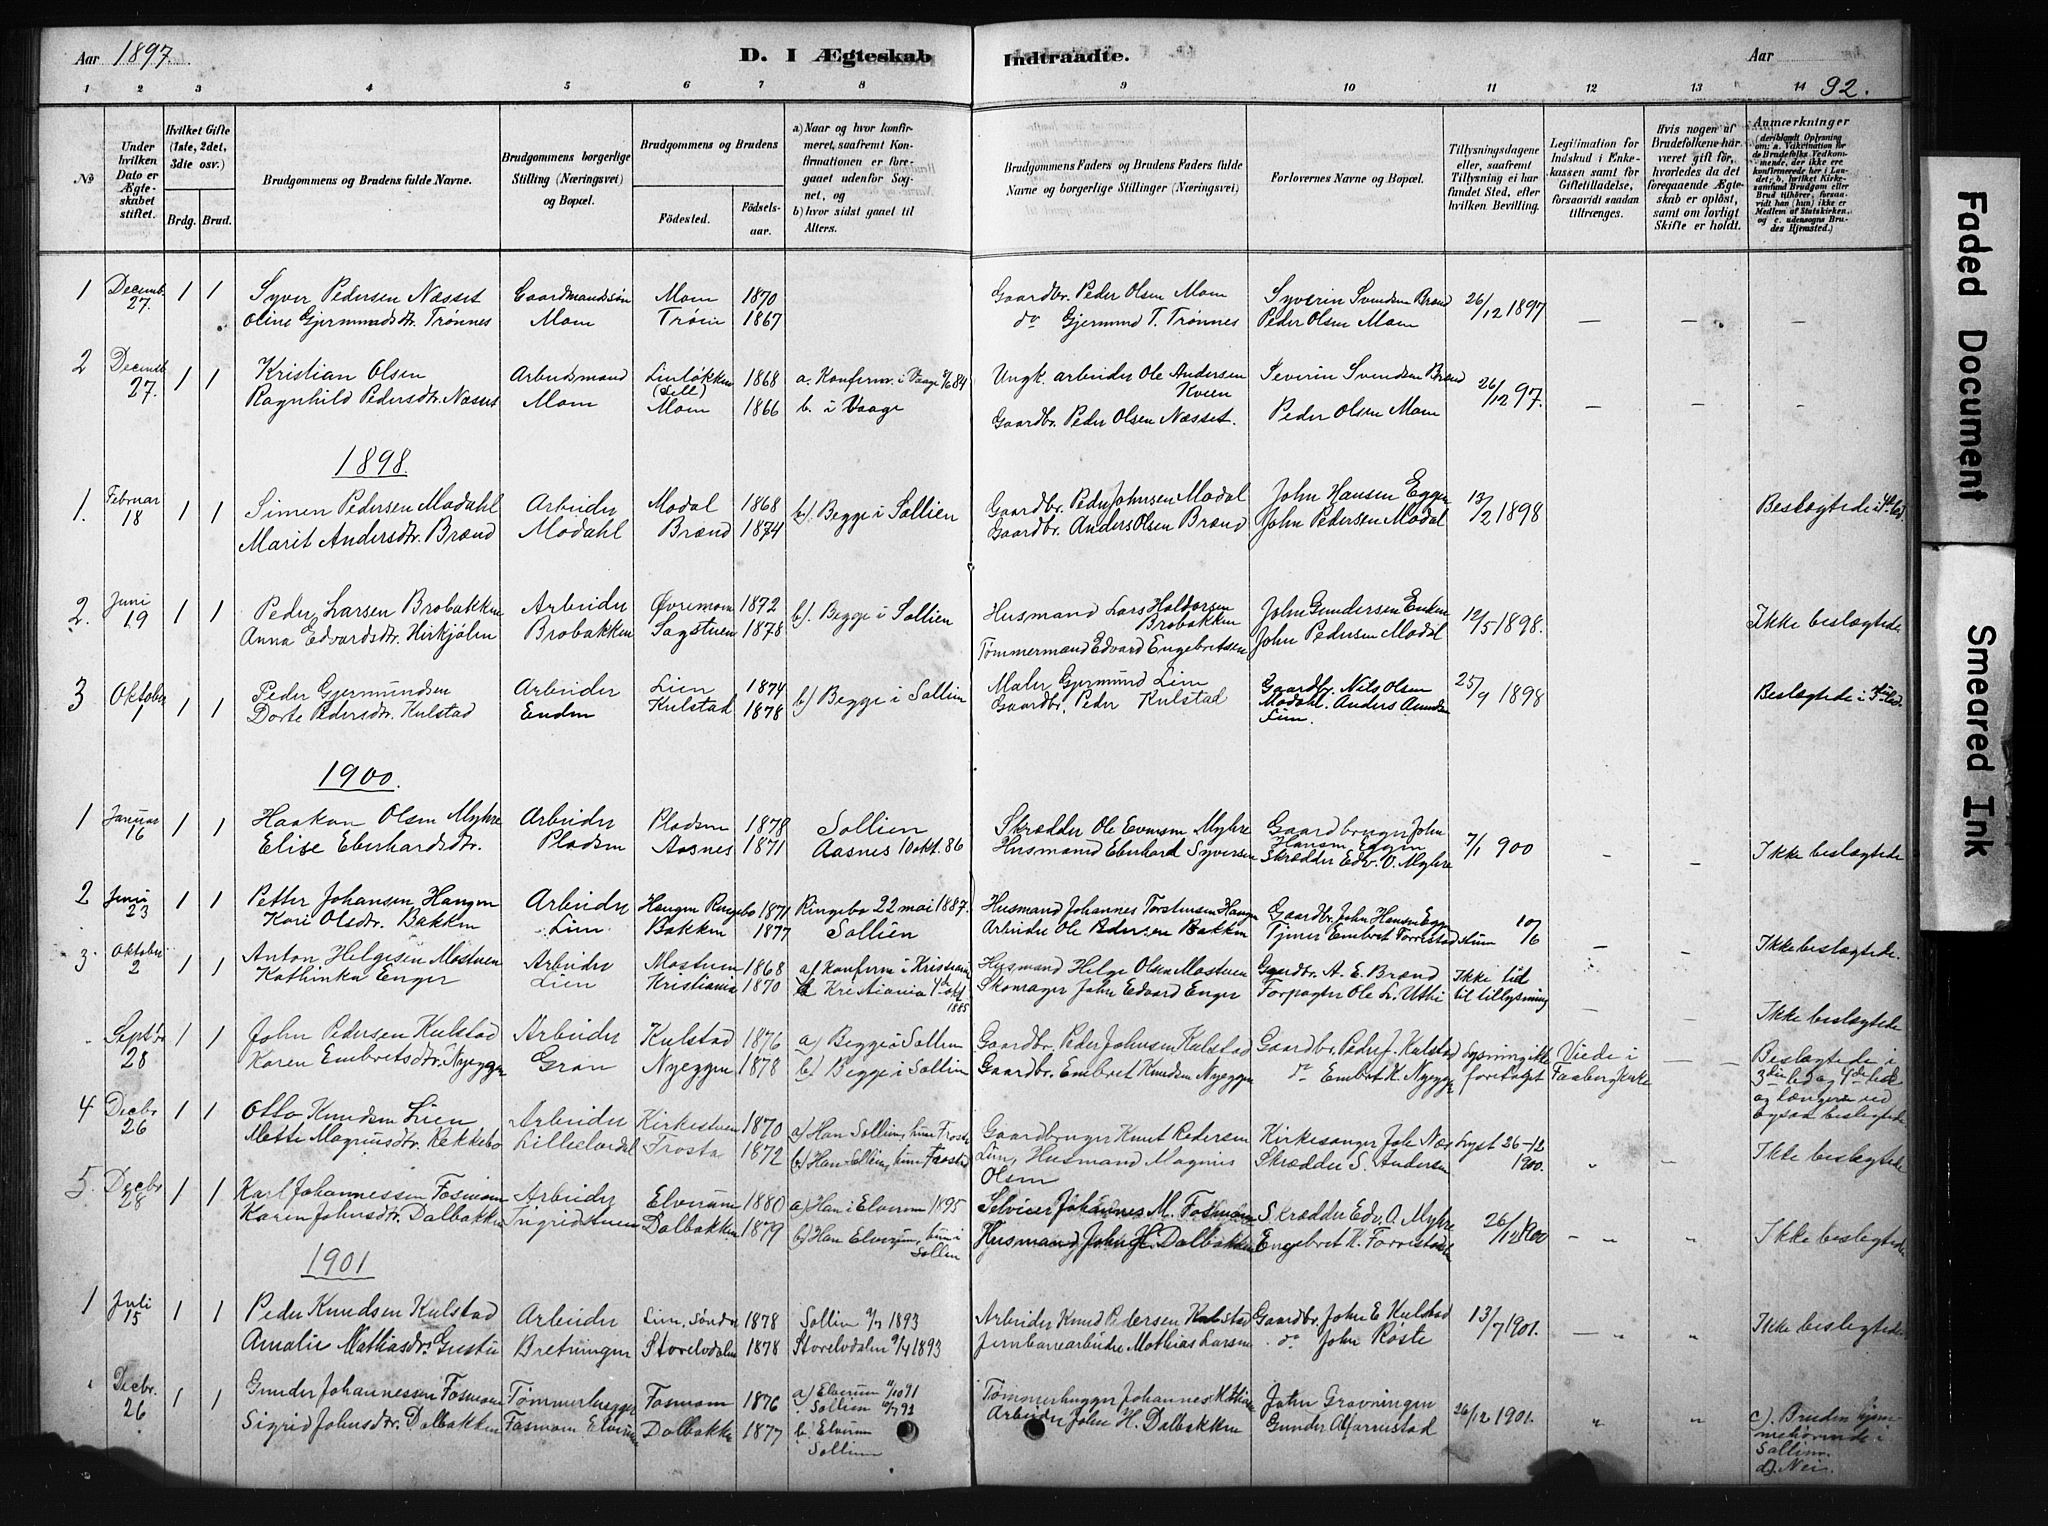 Aar 1897.
D. I Ægteskab Indtraadte.
Aar
92.
1 2 3 4 5 6 7 8 9 10 11 12 13 14
No
Under hvilken Dato er Ægteskabet stiftet.
Hvilket Gifte (1ste, 2det, 3die osv.)
Brdg. Brud.
Brudgommens og Brudens fulde Navne.
Brudgommens borgerlige Stilling (Næringsvei) og Bopæl.
Brudgommens og Brudens
Födested. Födselsaar.
a) Naar og hvor konfirmeret, saafremt Konfirmationen er foregaaet udenfor Sognet, og
b) hvor sidst gaaet til Alters.
Brudgommens Faders og Brudens Faders fulde Navne og borgerlige Stillinger (Næringsvei)
Forlovernes Navne og Bopæl.
Tillysningsdagene eller, saafremt Tillysning ei har fundet Sted, efter hvilken Bevilling.
Legitimation for Indskud i Enkekassen samt for Giftetilladelse, forsaavidt saadan tiltrænges.
Hvis nogen af Brudefolkene har været gift før, hvorledes da det foregaaende Ægteskab er oplöst, samt om lovligt Skifte er holdt.
Anmærkninger
(deriblandt Oplysning om: a. Vakcination for de Brudefolks Vedkommende, der ikke ere konfirmerede her i Landet; b. hvilket Kirkesamfund Brudgom eller Brud tilhører, forsaavidt han (hun) ikke er Medlem af Statskirken, og c. udensogns Brudes Hjemsted.)
1 Decemb 27. 1 1 Syver Pedersen Næsset Gaardmandssøn Mom 1870 Gaardbr. Peder Olsen Mom Syverin Svendsen Brænd 26/12 1897 — — —
Oline Gjermundsdtr. Trønnes Mom Trøen 1867 do Gjermund T. Trønnes Peder Olsen Mom
2 Decemb 27. 1 1 Kristian Olsen Arbeidsmand 1868 a. Konfirm. i Vaage 84 Ungk. arbeider Ole Andersen Kveen Severin Svendsen Brænd 26/12 97. — — —
Ragnhild Pedersdtr. Næsset Mom Mom 1866 b. i Vaage Gaardbr. Peder Olsen Næsset. Peder Olsen Mom
1898.
1. Februar 18 1 1 Simen Pedersen Modahl Arbeider Modal 1868 b). Begge i Sollien Gaardbr. Peder Johnsen Modal John Hansen Eggen 13/2 1898 Beslægtede i
Marit Andersdtr. Brænd Modahl Brænd 1874 Gaardbr. Anders Olsen Brænd John Pedersen Modal
2. Juni 19 1 1 Peder Larsen Brobakken Arbeider Øvremoen 1872 b). Begge i Sollien Husmand Lars Haldorsen Brobakken John Gundersen Enden 12/5 1898. Ikke beslægtede
Anna Edvardsdtr. Kirkjølen Brobakken Sagstuen 1878 Tømmermand Edvard Engebretsen John Pedersen Modal
3 Oktober 1 1 1 Peder Gjermundsen Arbeider Lien 1874 b) Begge i Sollien Maler Gjermund Lien Gaardbr. Nils Olsen 25/9 1898 Beslægtede i
Dorte Pedersdtr. Kulstad Enden Kulstad 1878 Gaardbr. Peder Kulstad Modahl. Anders Amundsen Lien.
1900.
1 Januar 16 1 1 Haakon Olsen Myhre Arbeider Pladsen 1878 Sollien Skrædder Ole Evensen Myhre Gaardbruger John Hansen Eggen 7/1 900 — — Ikke beslægtede
Elise Eberhardsdtr. Pladsen Aasnes 1871 Aasnes 10 okt. 86 Husmand Eberhard Syversen Skrædder Edv. O. Myhre
2 Juni 23 1 1 Petter Johansen Haugen Arbeider Haugen Ringebo 1871 Ringebo 22 mai 1887. Husmand Johannes Torstensen Haugen Gaardbr. John Hansen Eggen 10/6 — — Ikke beslægtede.
Kari Olsdtr. Bakken Lien Bakken 1877 Sollien Arbeider Ole Pedersen Bakken Tjener Embret Forrestadstuen
3. Oktober 2 1 1 Anton Helgesen Mostuen Arbeider Mostuen 1868 a) Konfirm i Kristiania Husmand Helge Olsen Mostuen Gaardbr. A. E. Brænd Ikke tid — — Ikke beslægtede
Kathinka Enger Lien Kristiania 1870 Kristiania 4de okt 1885 Skomager John Edvard Enger Forpagter Ole L. Uthi til tillysning
Septbr 28 1 1 John Pedersen Kulstad Arbeider Kulstad 1876 a) Begge i Sollien Gaardbr. Peder Johnsen Kulstad Gaardbr. Peder J. Kulstad Lysning ikke Viede i — — Beslægtede i
Karen Embretsdtr. Nyeggen Gran Nyeggen 1878 b) Begge i Sollien Gaardbr. Embret Knudsen Nyeggen do Embret K. Nyeggen foretaget Faaberg Kirke 3die led og 4de led og længere ved ogsaa beslægtede
4 Decbr 26 1 1 Otto Knudsen Lien Arbeider Kirkestuen 1870 a) Han Sollien, hun Frosta Gaardbruger Knut Pedersen Kirkesanger Joh. Næs Lyst 26-12 1900. „ — Ikke beslægtede
Mette Magnusdtr. Rekkebo Lilleelvdal Frosta 1872 b) Han Sollien, hun Frosta Lien, Husmand Magnus Olsen Skrædder S. Andersen
5. Decbr 28 1 1 Karl Johannessen Fosmoen Arbeider Elverum 1880 a) Han i Elverum 1895 Selveier Johannes M. Fosmoen Skrædder Edv. O. Myhre 26/12 1900 — „ „ Ikke beslægtede
Karen Johnsdtr. Dalbakken Ingridstuen Dalbakken 1879 b) Han Elverum, hun i Sollien Husmand John H. Dalbakken Engebret K. Forrestadstuen
1901
1 Juli 15 1 1 Peder Knudsen Kulstad Arbeider Lien, Søndre 1878 Sollien 1893 Arbeider Knud Pedersen Kulstad Gaardbr. John E Kulstad 13/7 1901. — „ „ Ikke beslægtede
Amalie Mathiasdtr. Bretningen Storelvdalen 1878 Storelvdalen 1893 Jernbanearbeider Mathias Larsen do John Koste
Decbr. 26 1 1 Gunder Johannessen Fosmoen Tømmerhugger Fosmoen 1876 a) Elverum 91 Sollien 93 Tømmerhugger Johannes John Gravningen 26/12 1901. „ „ c). Bruden hjemmehørende i Sollien. d). Nei.
Sigrid Johnsdtr. Dalbakken Fosmoen Elverum Dalbakke 1877 b. Elverum Sollien Arbeider John H. Dalbakken Gunder
Faded Document
Smeared Ink